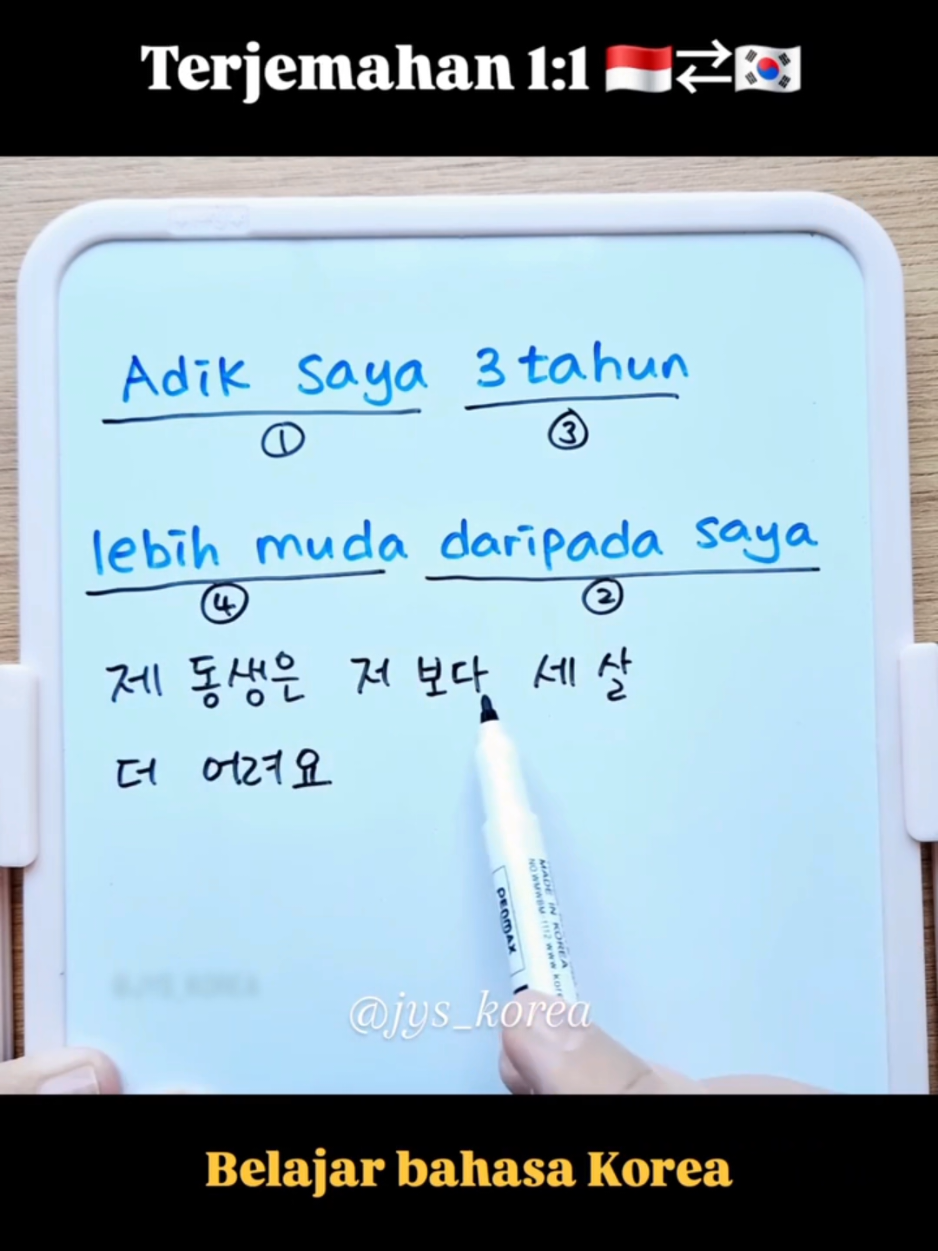 Terjemahan 1:1 🇮🇩⇄🇰🇷
Adik saya 3 tahun
① ③
lebih muda daripada saya
④ ②
제 동생은 저 보다 세 살
더 어려요
PENMAX
MADE IN KOREA
@jys_korea
Belajar bahasa Korea